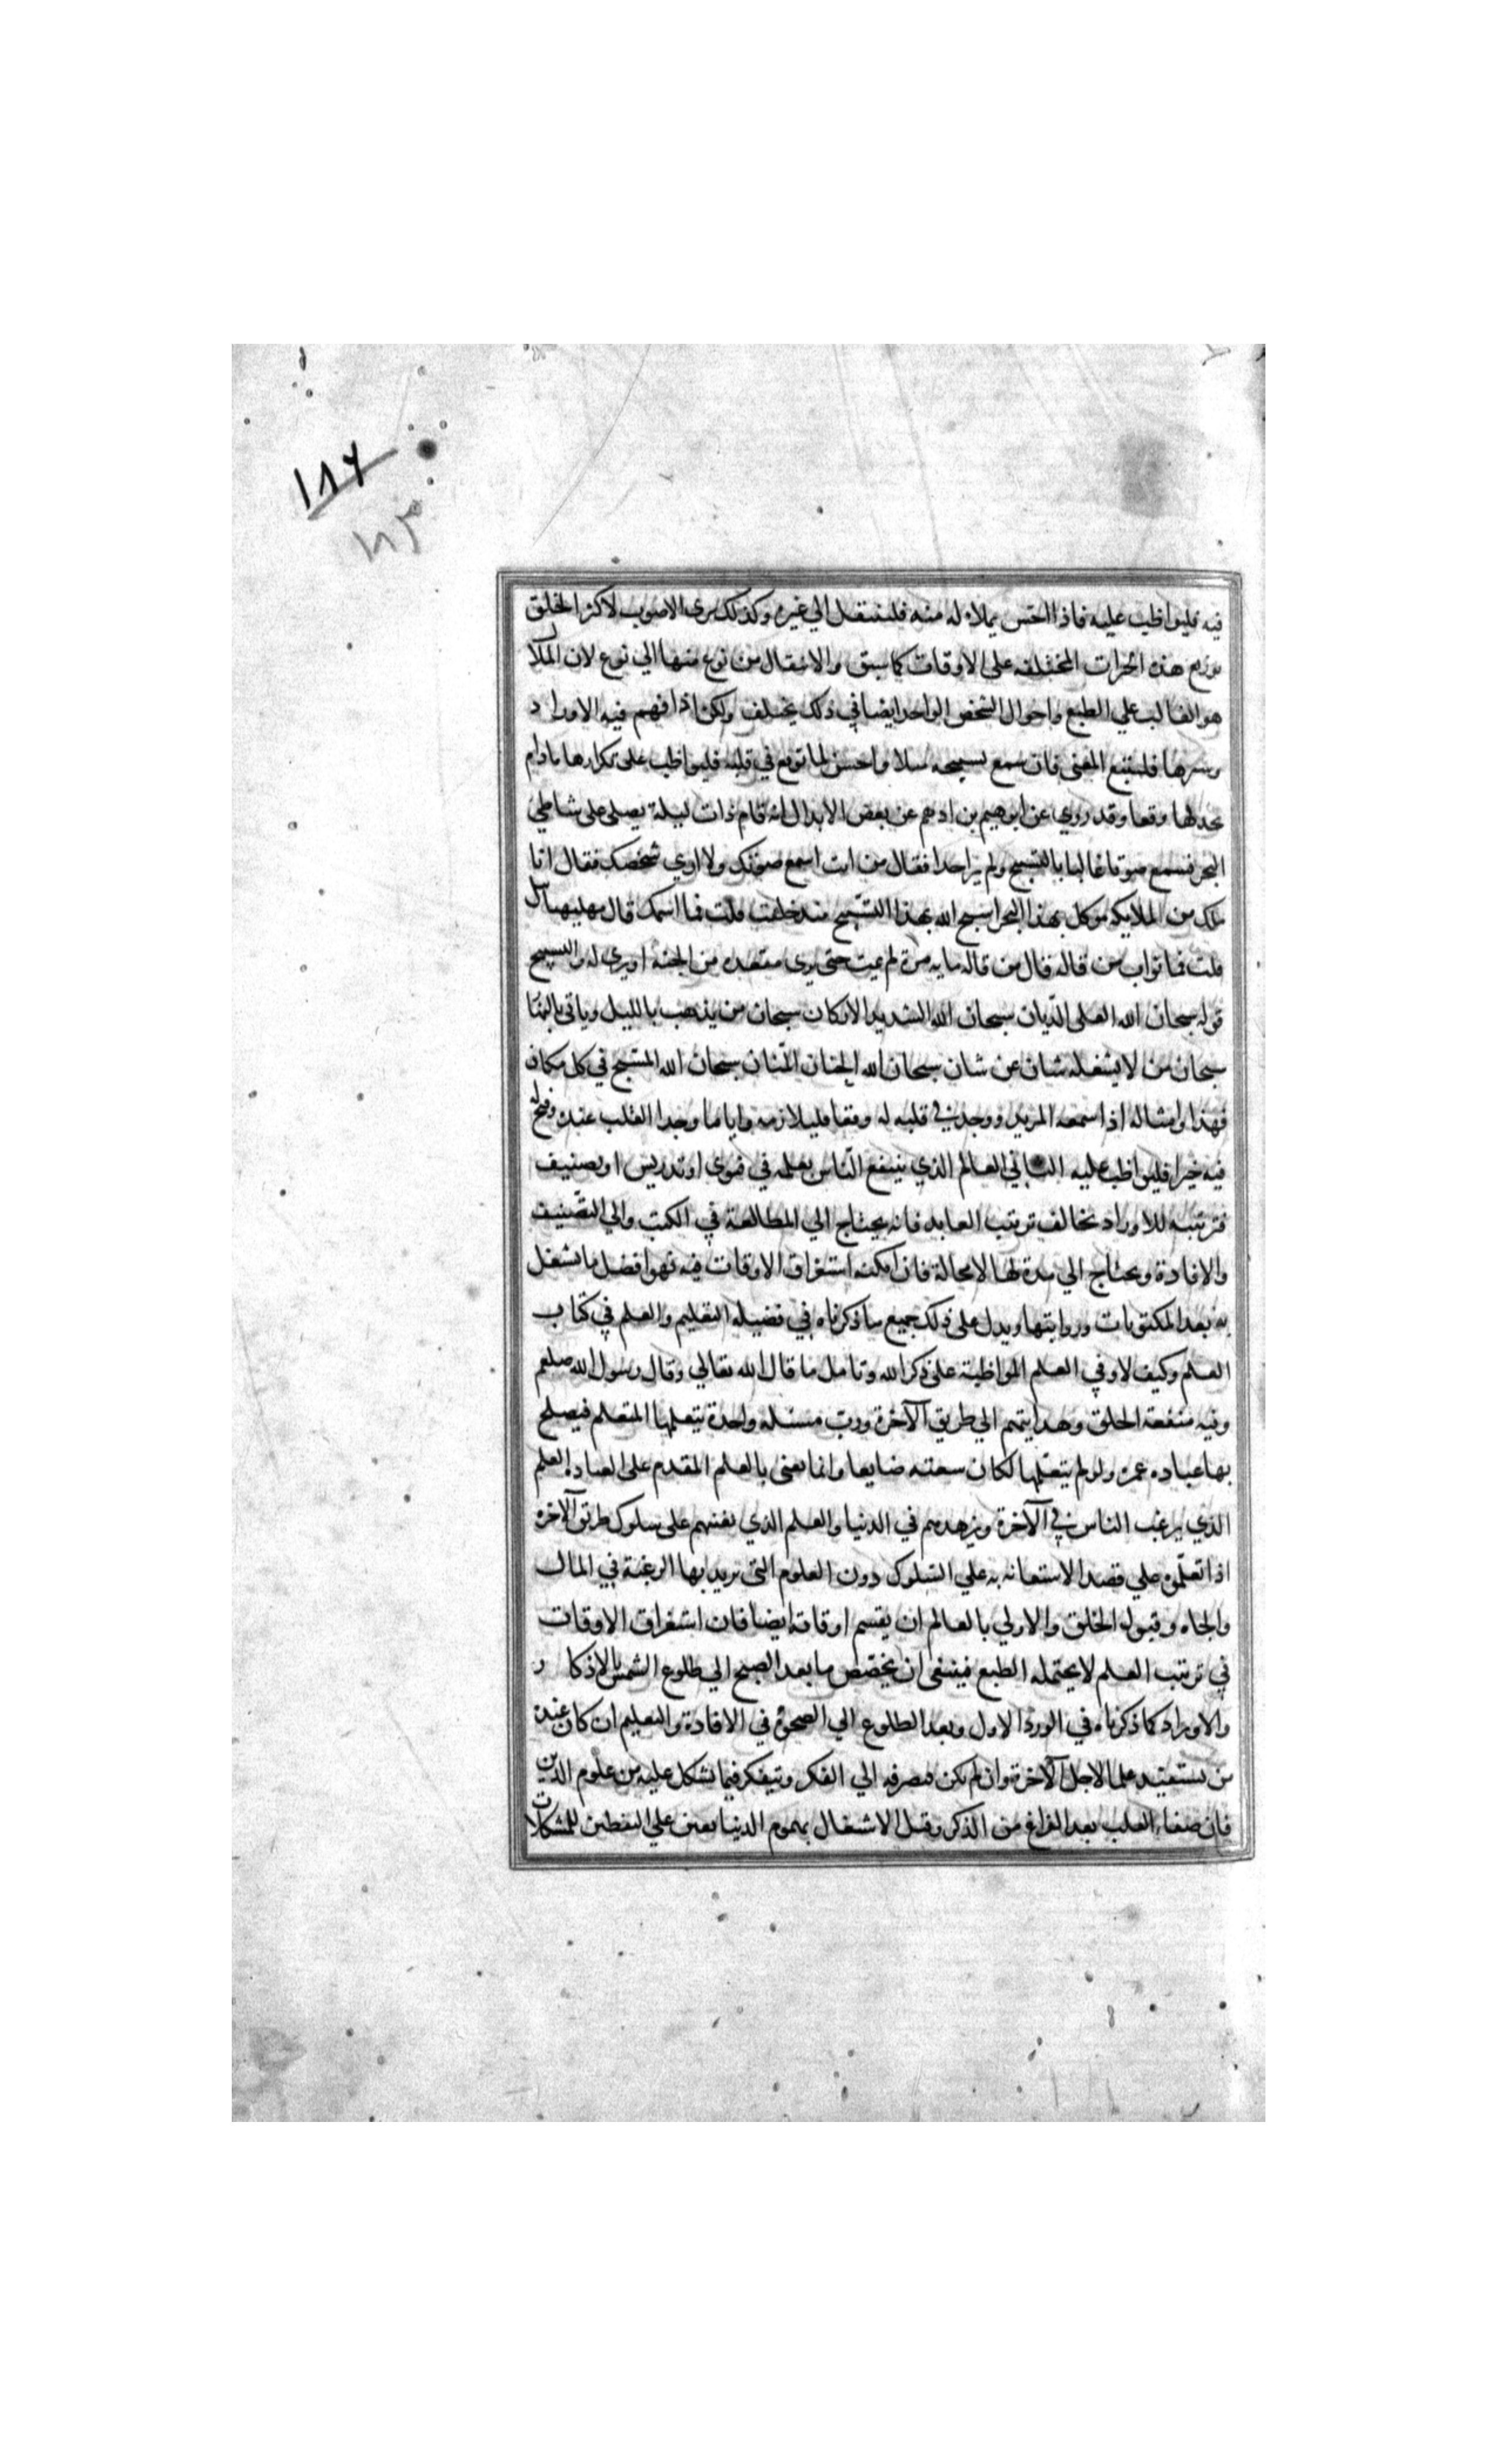 ١٨٦
١٨٣
فيه فليواظب عليه فاذا احس بملاله منه فلينتقل الي غيره وكذلك يرى الاصوب لاكثر الخلق
توزيع هذه الخيرات المختلفه على الاوقات كما سبق والانتقال من نوع منها الي نوع لان الملال
هو الغالب علي الطبع واحوال الشخص الواحد ايضا في ذلك يختلف ولكن اذا فهم فيه الاوراد
وسرها فليتبع المعنى فان سمع تسبيحه مثلا واحسن لها توقع في قلبه فليواظب على تكرارها مادام
يجد لها وقعا وقد روي عن ابرهيم بن ادهم عن بعض الابدال انه قام ذات ليلة يصلي على شاطي
البحر فسمع صوتا عاليا بالتسبيح ولم ير احدا فقال من انت اسمع صوتك ولا اري شخصك فقال انا
ملك من الملايكه موكل بهذا البحر اسبح الله بهذا التسبيح منذ خلقت قلت فما اسمك قال مهليهيايل
قلت فما ثواب من قاله قال من قاله مايه مرة لم يمت حتى يرى مقعده من الجنه او يرى له والتسبيح
قوله سبحان الله العلى الديان سبحان الله الشديد الاركان سبحان من يذهب بالليل وياتي بالنها
سبحان من لا يشغله شان عن شان سبحان الله الحنان المنان سبحان الله المسبح في كل مكان
فهذا وامثاله اذا سمعه المريد ووجد في قلبه له وقعا فليلازمه واياما وجدا القلب عنده وفتح له
فيه خيرا فليواظب عليه الثاني العالم الذي ينتفع الناس بعلمه في فتوى او تدريس او تصنيف
فترتيبه للاوراد يخالف ترتيب العابد فانه يحتاج الي المطالعة في الكتب والي التصنيف
والافادة ويحتاج الي مدة لها لا محالة فان امكنه استغراق الاوقات فيه فهو افضل ما تشغل
به بعد المكتوبات ورواتبها ويدل على ذلك جميع ما ذكرناه في فضيله التعليم والعلم في كتاب
العلم وكيف لا وفي العلم المواظبة على ذكر الله وتامل ما قال الله تعالي وقال رسول الله صلعم
وفيه منفعة الخلق وهدايتهم الي طريق الآخرة ورب مسئله واحدة يتعلمها المتعلم فيصلح
بها عباده عمره ولو لم يتعلمها لكان سعته ضايعا وانما يعنى بالعلم المقدم على العباد العلم
الذي يرغب الناس في الآخرة ويزهدهم في الدنيا والعلم الذي يعينهم على سلوك طريق الآخره
اذا تعلموه علي قصد الاستعانه به علي السلوك دون العلوم التي يريد بها الرغبة في المال
والجاه وقبول الخلق والاولي بالعالم ان يقسم اوقاته ايضا فان استغراق الاوقات
في ترتيب العلم لا يحتمله الطبع فينبغى ان يخصص ما بعد الصبح الي طلوع الشمس بالاذكار
والاوراد كما ذكرناه في الورد الاول وبعد الطلوع الي الضحوة في الافادة والتعليم ان كان عنده
من يستفيد علما لاجل الآخرة وان لم يكن فيصرفه الي الفكر ويتفكر فيما يشكل عليه من علوم الدين
فان صفاء القلب بعد الفراغ من الذكر وقبل الاشتغال بهموم الدنيا يعين علي التفطن للمشكلات